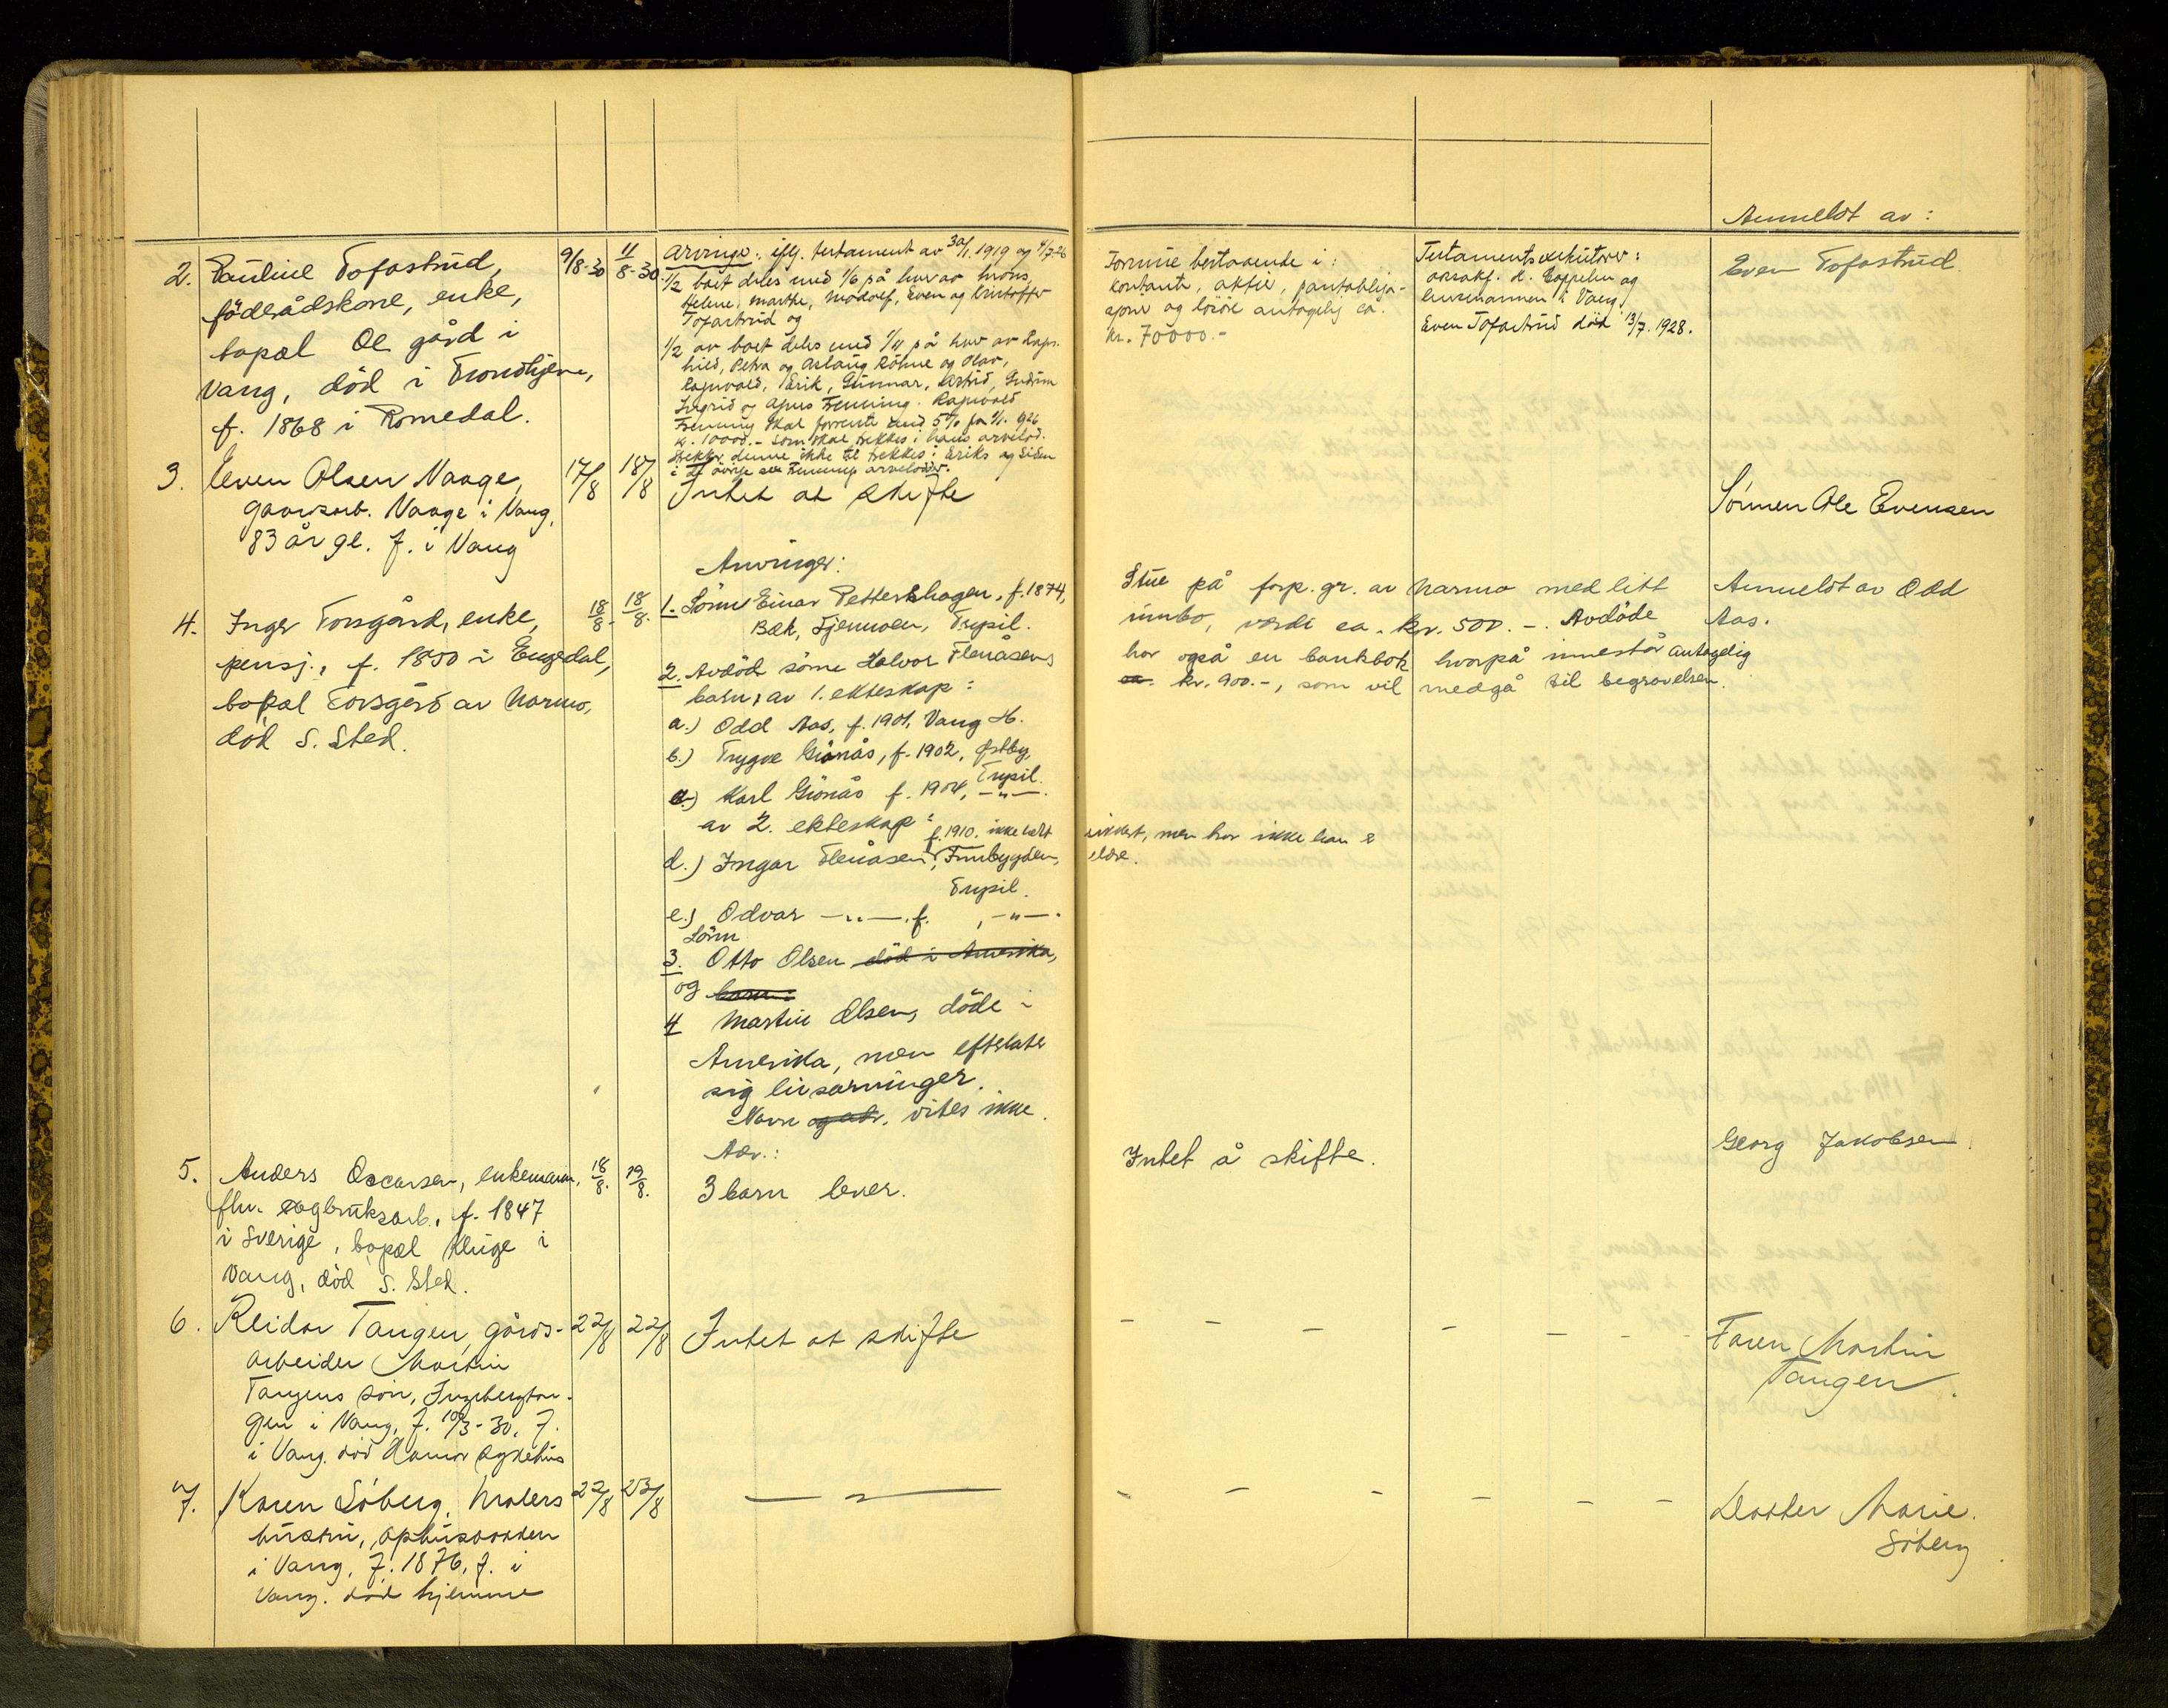 Anmeldt av:
2. Pauline Tofastrud,
föderådskone, enke,
bopæl Ol gård i
Vang, död i Trondhjem,
f. 1868 i Romedal.
9/8-30
11/8-30
Arvinge: iflg. testament av 30/1. 1919 og 4/7-26
1/2 boet deles med 1/6 på hver av
Helene, Marthe, Modolf, Even og Kristoffer
Tofastrud og
1/2 av boet deles med 1/11 på hver av Ragn-
hild, Petra og Aslaug Röhne og Olav,
Ragnvald, Erik, Gunnar, Astrid, Gudrun
Ingrid og Agnes Fenning. Ragnvald
Fenning skal forrente med 5% fra 1/1. 1926
kr. 10000.- som skal trekkes i hans arvelod.
denne ikke til trekkes i Eriks og siden
i de övrige Fennings arvelodder.
Formue bestaaende i:
kontante, aktie, pantobliga-
sjone og lösöre antagelig ca.
kr. 70000.-
Testamentseksekutorer:
o.r.sakf. H. Coppelen og
lensmannen i Vang
Even Tofastrud död 13/7. 1928.
Even Tofastrud.
3. Even Olsen Naage,
gaardsarb. Naage i Vang,
83 år gl. f. i Vang
17/8
18/8
Intet at skifte
Sönnen Ole Evensen
4. Inger Torsgård, enke,
pensj., f. 1850 i Engerdal,
bopæl Torsgård av Narmo,
död s. sted.
18/8.
18/8.
Arvinger:
1. Sönn Einar Pettershagen, f. 1874,
Bæk, Tjernmoen, Trysil.
2. Avdöd sönn Halvor Flenåsens
barn, av 1. ekteskap:
a.) Odd Aas, f. 1901, Vang H.
b.) Trygve Grönås, f. 1902, Østby,
Trysil.
c.) Karl Grönås f. 1904, -"-.
av 2. ekteskap:
f. 1910. ikke helt sikkert, men hor ikke han e
d.) Ingar Flenåsen, Finnbygden, eldre.
Trysil.
e.) Odvar -"-, f. , -"-.
Sönn
3. Otto Olsen död i Amerika,
og barn:
4 Martin Olsen, döde i
Amerika, men efterlater
sig livsarvinger.
Navn og adr. vites ikke.
Stue på forp. gr. av Narmo med litt
innbo, verdi ca. kr. 500.-. Avdöde
har også en bankbok hvorpå innestår antagelig
ca. kr. 900.-, som vil medgå til begravelsen.
Anmeldt av Odd
Aas.
5. Anders Oscarsen, enkemann,
fhv. sagbruksarb., f. 1847
i Sverige, bopæl Kluge i
Vang, död s. sted.
18/8.
19/8.
Arv.:
3 barn lever.
Intet å skifte.
Georg Jakobsen.
6. Reidar Tangen, gårds-
arbeider Martin
Tangens sön, Ingebergtan-
gen i Vang, f. 10/3-30, f.
i Vang. död Hamar sykehus
22/8
22/8
Intet at skifte
- - - - - - -
Faren Martin
Tangen.
7. Karen Söberg, Malers
hustru,
i Vang, f. 1876, f. i
Vang. död hjemme
22/8
23/8
— " —
- - - - - -
Datter Marie
Söberg.